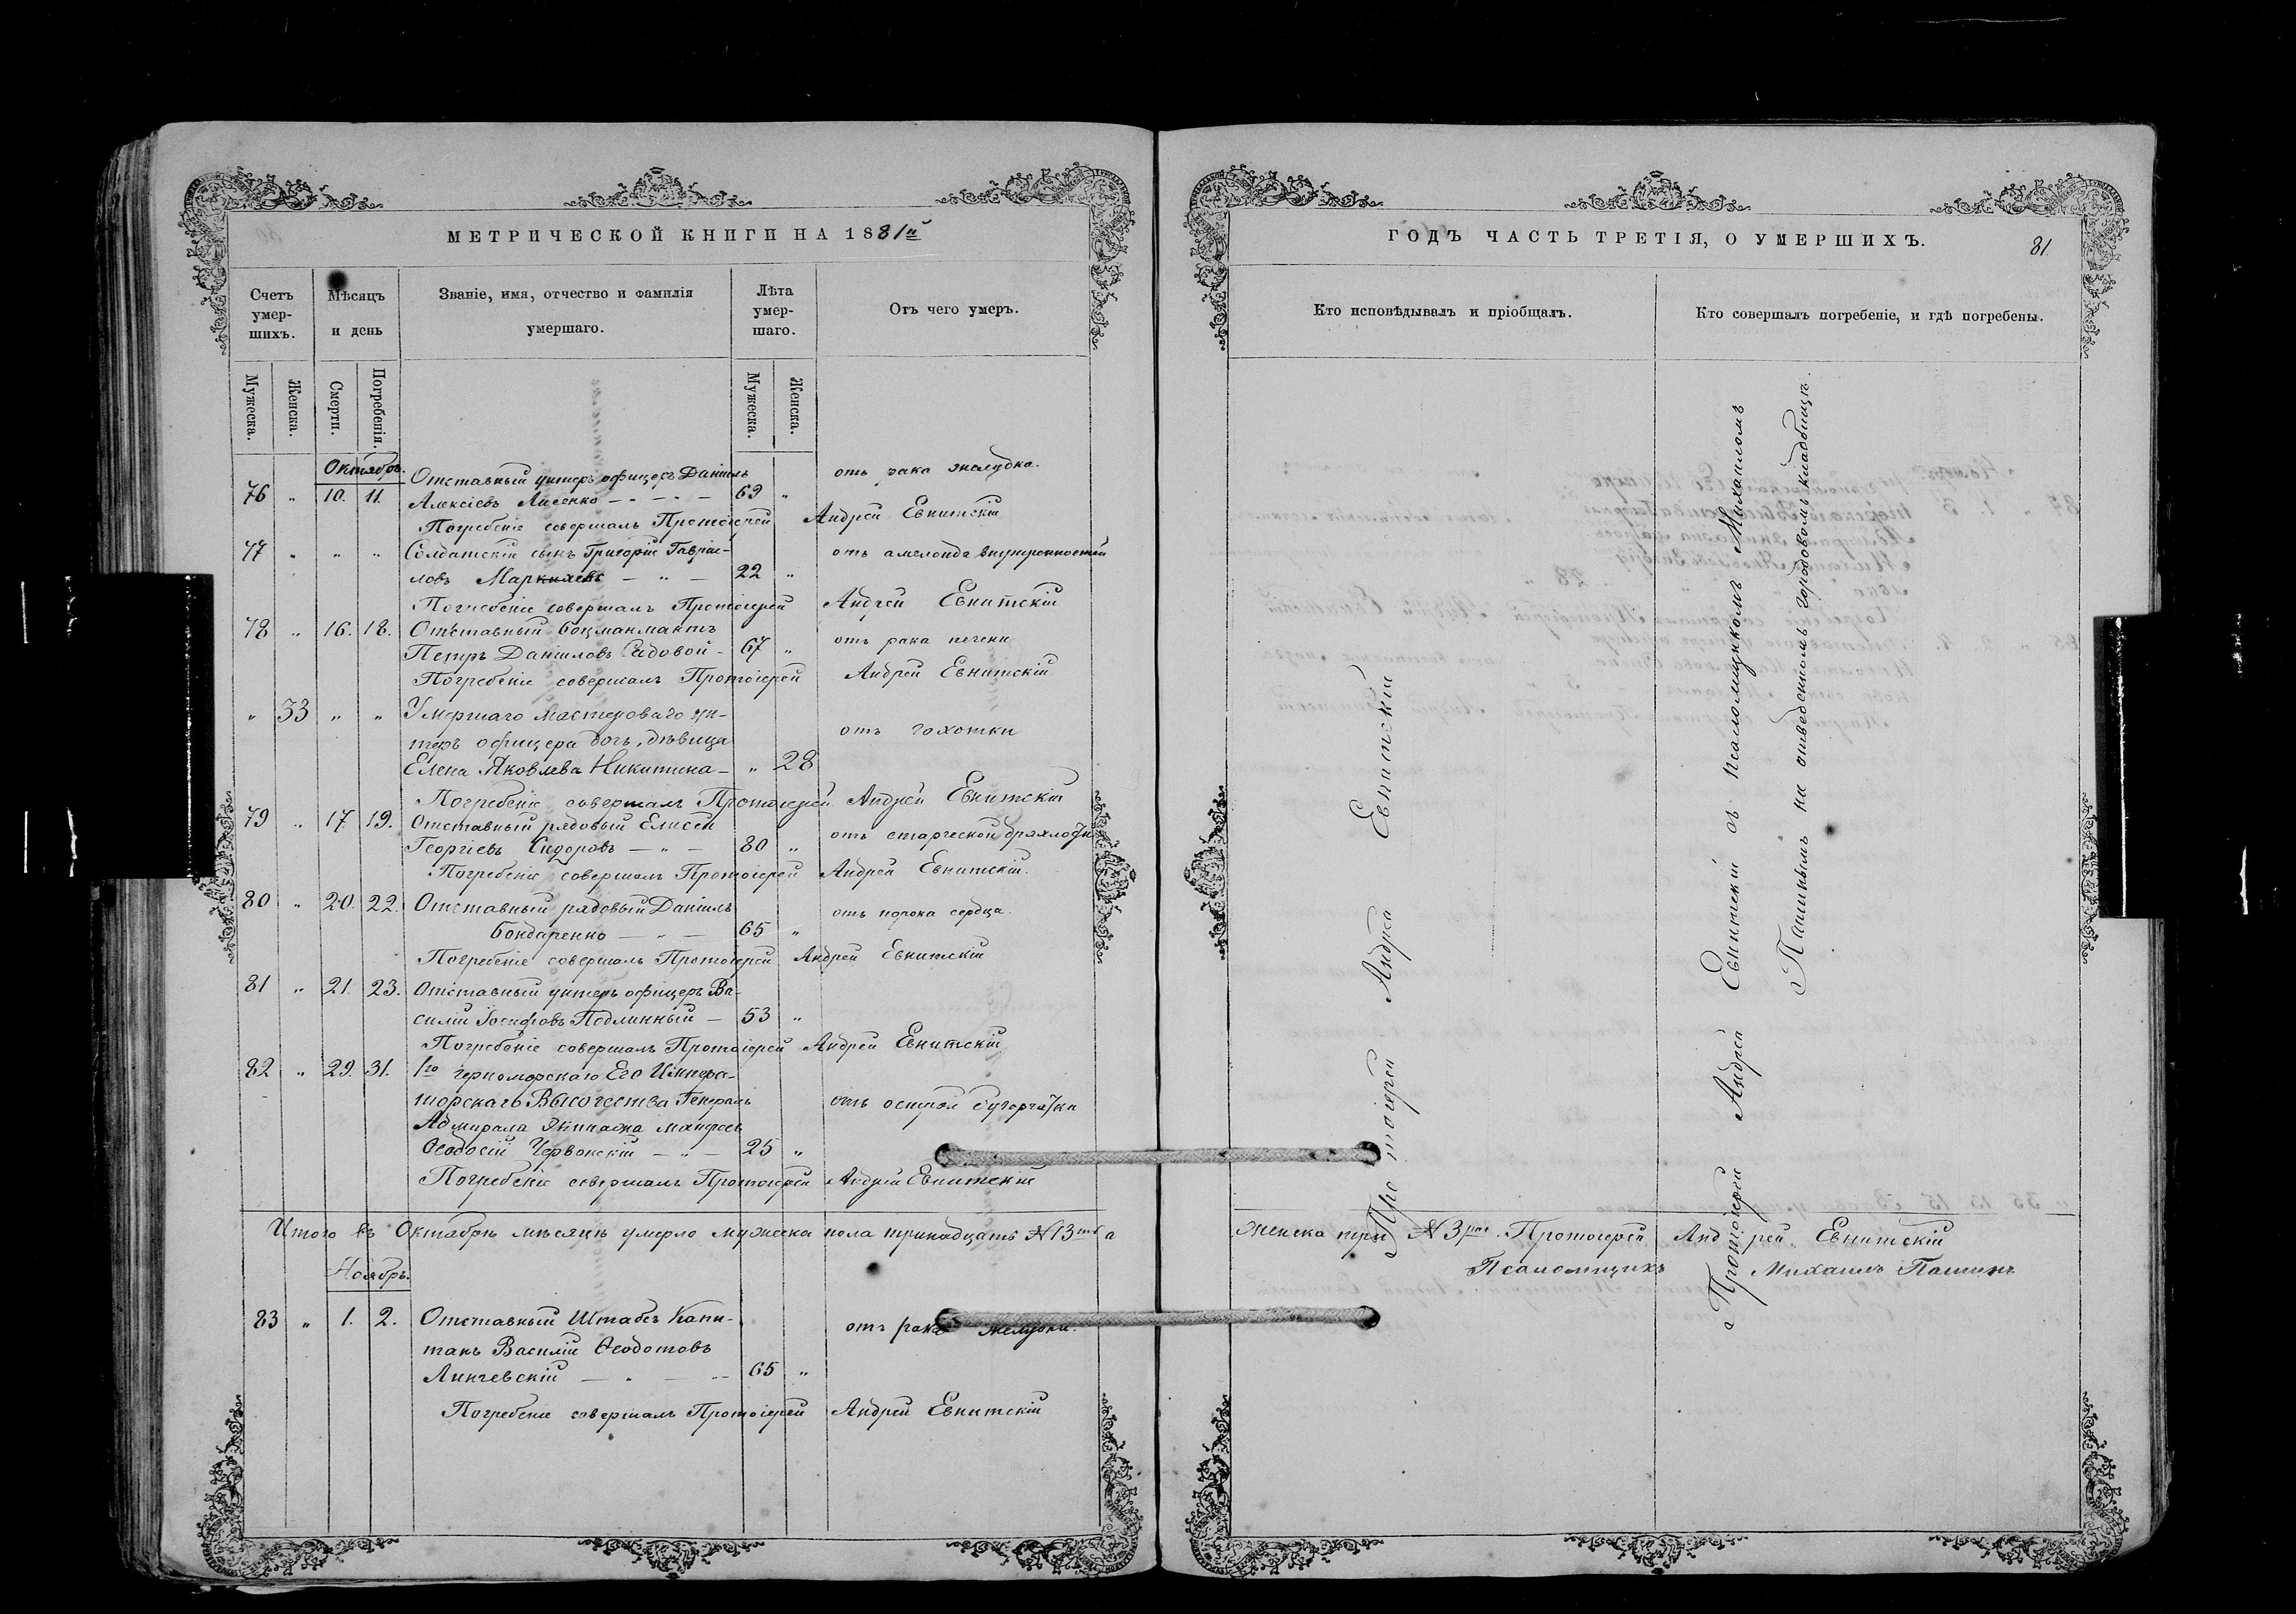 МЕТРИЧЕСКОЙ КНИГИ НА 1881й
Счетъ умер-шихъ.
Мѣсяцъ и день
Званіе, имя, отчество и фамилія умершаго.
Лѣта умер-шаго.
Отъ чего умеръ.
Мужеска. Женска. Смерти. Погребенія. Мужеска. Женска.
Октябрь.
Отставный унтеръ офицеръ Даніилъ отъ рака желудка.
76 " 10. 11. Алексіевъ Лисенко — " — 69 "
Погребеніе совершалъ Протоіерей Андрей Евнитскій
77 " " " Солдатскій сынъ Григорій Гавріи- отъ внутренностей
ловъ — " — 22 "
Погребеніе совершалъ Протоіерей Андрей Евнитскій
78 " 16. 18. Отставный боцманматъ отъ рака печени
Петръ Даніиловъ Садовой - 67 "
Погребеніе совершалъ Протоіерей Андрей Евнитскій
" 33 " " Умершаго мастероваго ун-
теръ офицера дочь, дѣвица отъ чахотки
Елена Яковлева Никитина - " 28
Погребеніе совершалъ Протоіерей Андрей Евнитскій
79 " 17 19. Отставный рядовый Елисей
Георгіевъ Сидоровъ — " — 80 " отъ старческой
Погребеніе совершалъ Протоіерей Андрей Евнитскій.
80 " 20. 22. Отставный рядовый Даніилъ отъ порока сердца.
Бондаренко — " — 65 "
Погребеніе совершалъ Протоіерей Андрей Евнитскій
81 " 21. 23. Отставный унтеръ офицеръ Ва-
силій Іосифовъ Подлинный — 53 "
Погребеніе совершалъ Протоіерей Андрей Евнитскій
82 " 29. 31. 1го Черноморскаго Его Импера-
торскаго Высочества Генералъ отъ острой бугорчатки
Адмирала Экипажа матросъ
Ѳеодосій Червонскій — " — 25 "
Погребеніе совершалъ Протоіерей Андрей Евнитскій
Итого въ Октябрѣ мѣсяцѣ умерло мужеска пола тринадцать №13 а
Ноябрь.
83 " 1. 2. Отставный Штабсъ Капи- отъ рака желудка.
танъ Василій Ѳеодотовъ
Линчевскій — " — 65 "
Погребеніе совершалъ Протоіерей Андрей Евнитскій
ГОДЪ ЧАСТЬ ТРЕТІЯ, О УМЕРШИХЪ.
81.
Кто исповѣдывалъ и пріобщалъ.
Кто совершалъ погребеніе, и гдѣ погребены.
Протоіерей Андрей Евнитскій
Протоіерей Андрей Евнитскій съ псаломщикомъ Михаиломъ
Пашинымъ на отведенномъ городовомъ кладбищѣ.
женска три №3 Протоіерей Андрей Евнитскій
Псаломщикъ Михаилъ Пашинъ